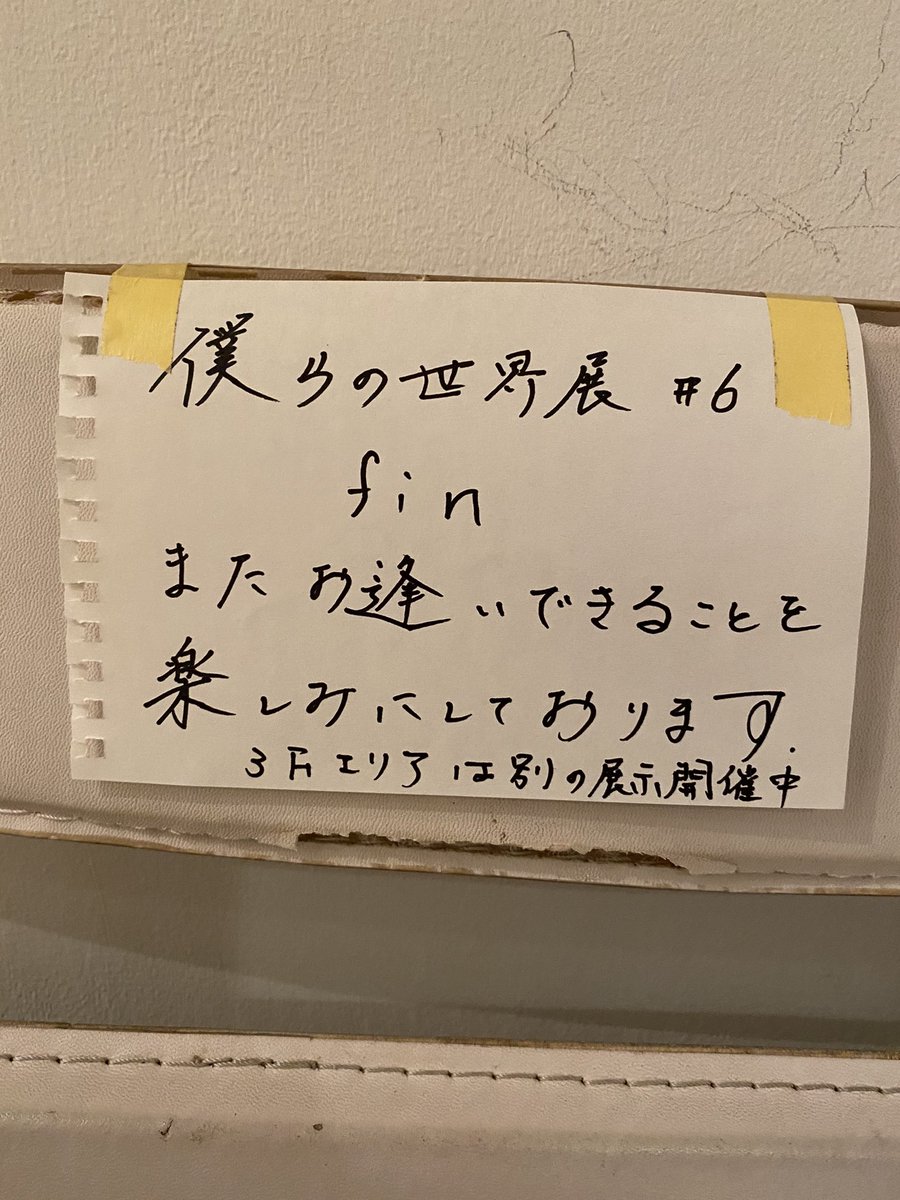 僕らの世界展 #6
fin
またお逢いできることを
楽しみにしております.
3Fエリアは別の展示開催中